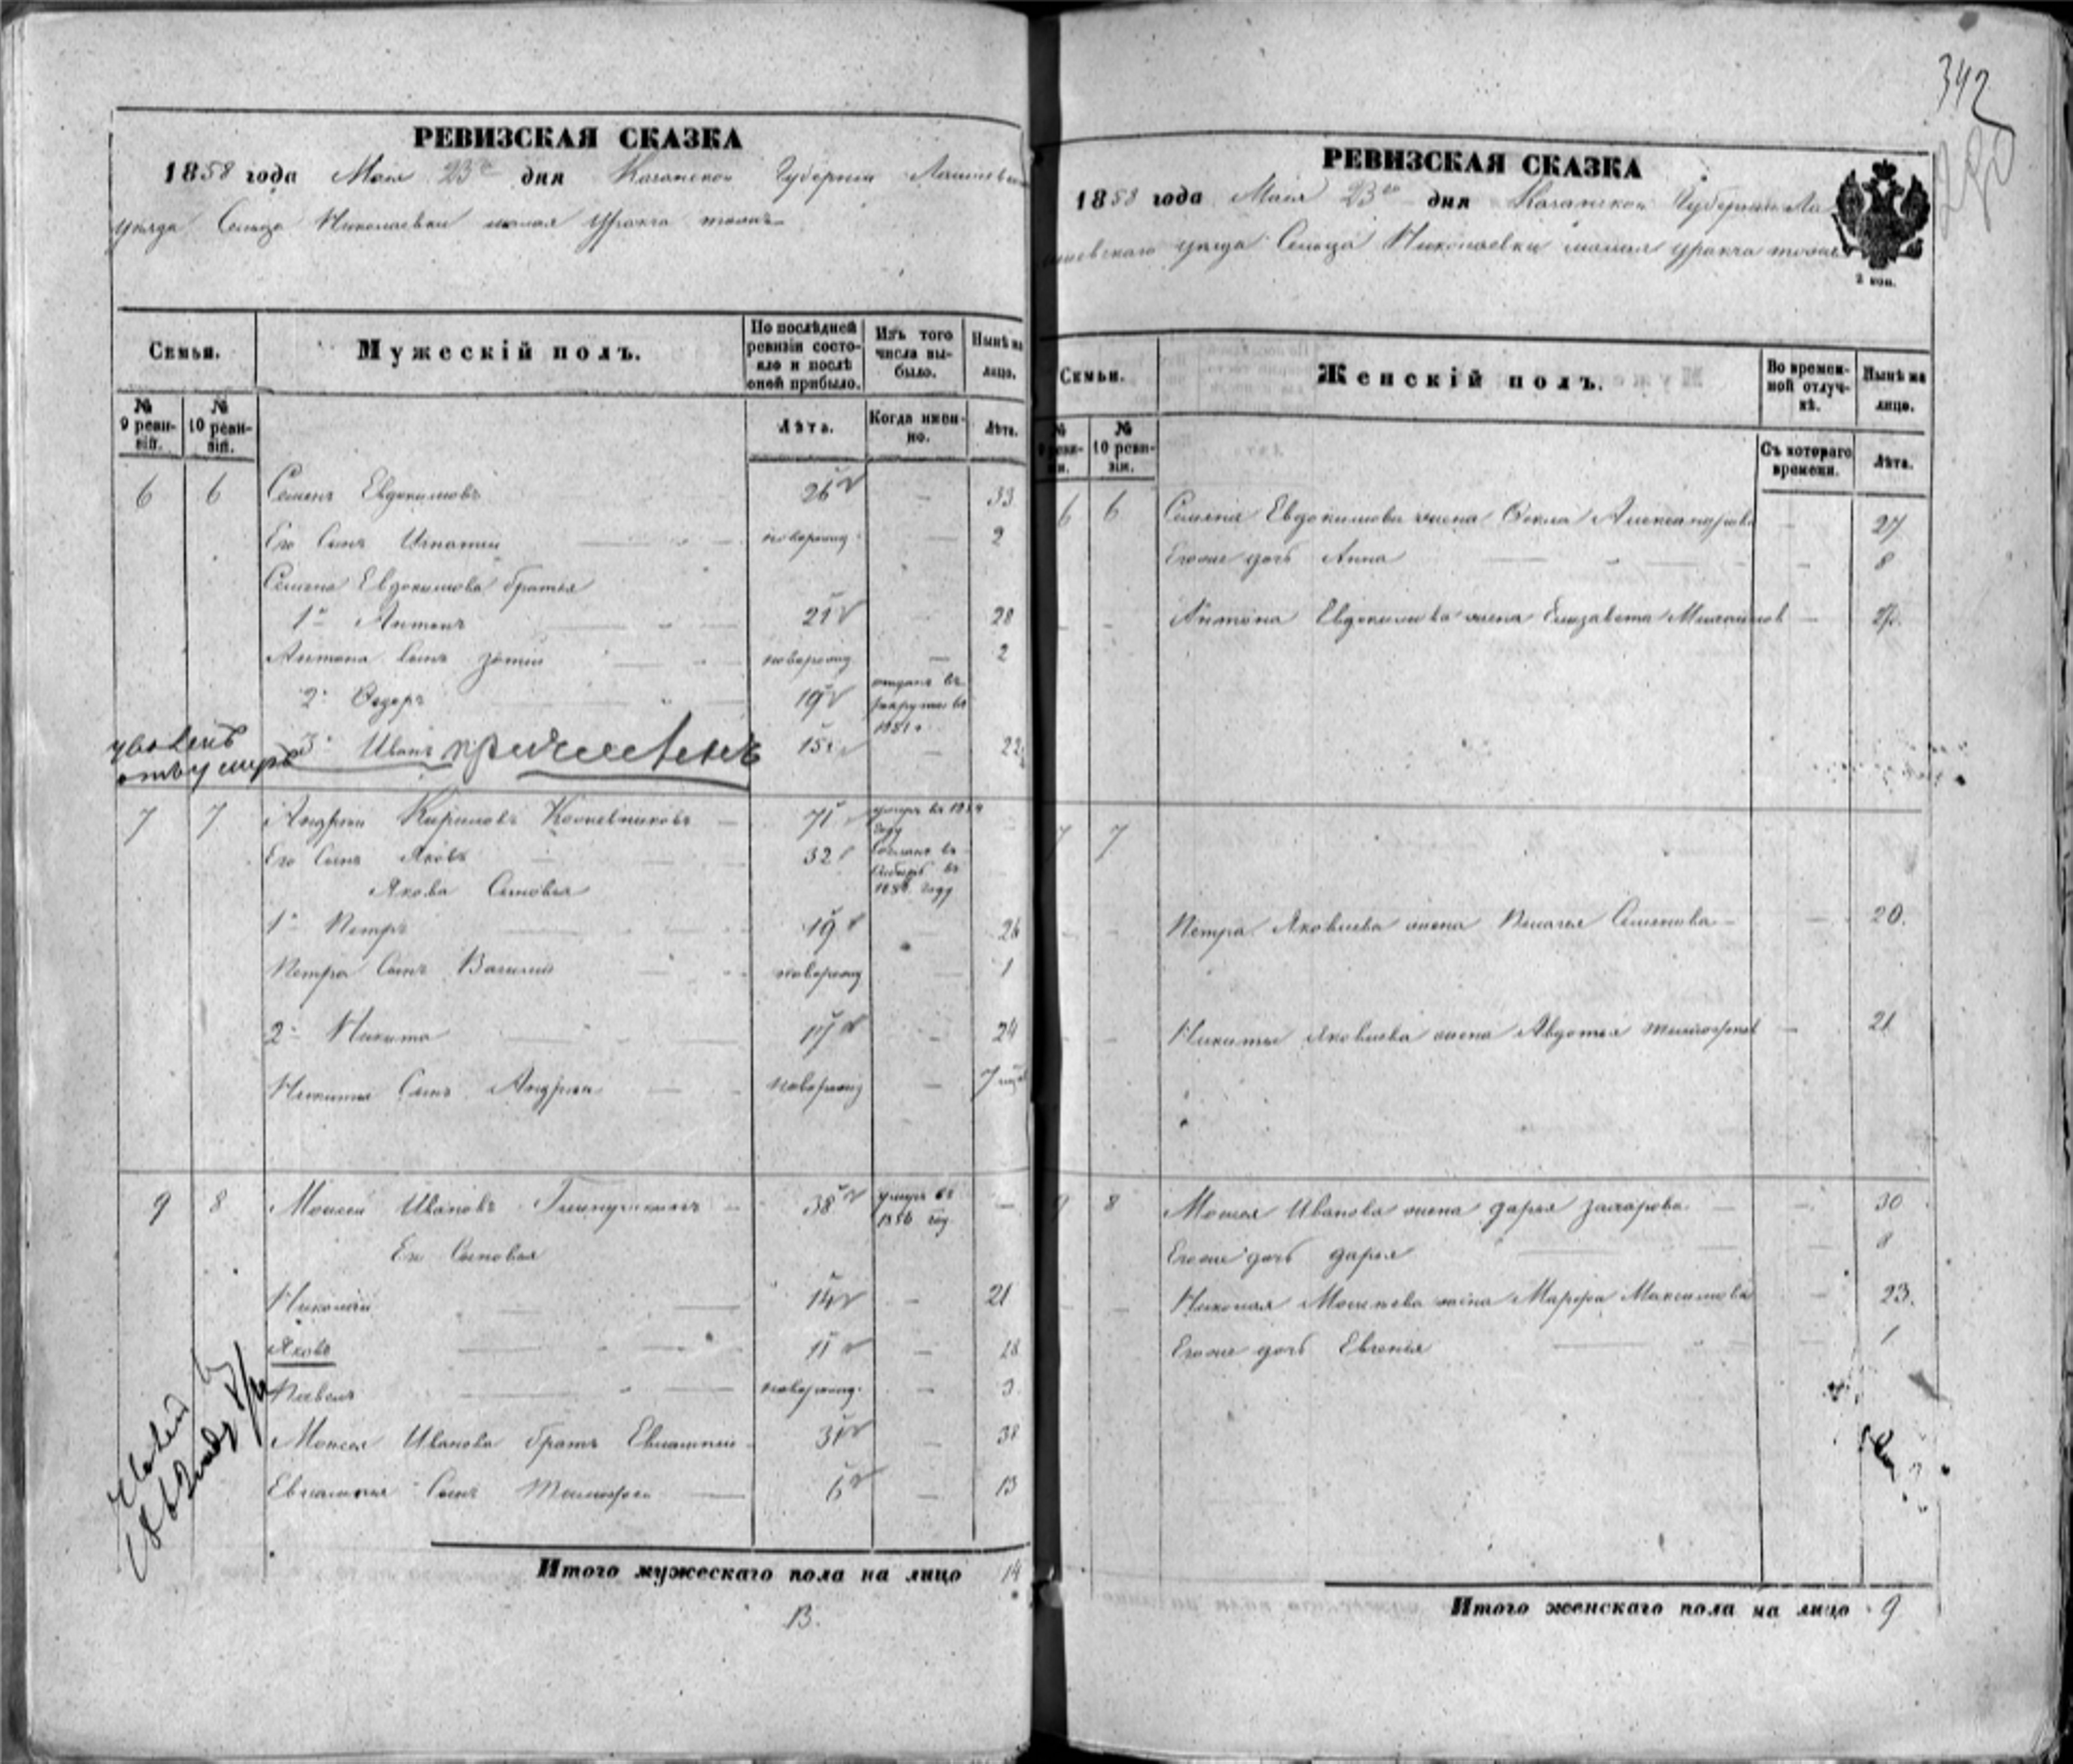 РЕВИЗСКАЯ СКАЗКА
1858 года Мая 23го дня Казанской Губернии Лаишевскаго
уезда Сельца Николаевки малая Уракча тожъ
Семьи.
Мужескій полъ.
По послѣдней ревизіи состояло и послѣ оной прибыло.
Изъ того числа выбыло.
Нынѣ на лицо.
№ 9 ревизіи.
№ 10 ревизіи.
Лѣта.
Когда именно.
Лѣта.
6 6 Семенъ Евдокимовъ 26 — 33
Его Сынъ Игнатій новорожд. — 2
Семена Евдокимова братья
1й Антонъ 21 — 28
Антона Сынъ новорожд — 2
2й Федоръ 19 отданъ въ рекруты въ
3й Иванъ 15 — 22
7 7 Андрей Кириловъ Кожевниковъ — 71 умеръ въ году
Его Сынъ Яковъ 32 Сосланъ въ Сибирь въ году
Якова Сыновья
1й Петръ 19 26
Петра Сынъ Василий новорожд — 1
2й Никита 17 — 24
Никиты Сынъ Андрей новорожд — 7
9 8 Моисей Ивановъ 38 умеръ въ 1856 год —
Его Сыновья
Николай 14 — 21
Яковъ 11 — 18
Павелъ новорожд. — 3
Моисея Иванова братъ Евлампий 31 — 38
Евлампия Сынъ Тимофей 6 — 13
Итого мужескаго пола на лицо 14
В.
342
РЕВИЗСКАЯ СКАЗКА
1858 года Мая 23го дня Казанской Губернии Лаишевскаго уезда Сельца Николаевки малая уракча тожъ
2 коп.
Семьи.
Женскій полъ.
Во временной отлучкѣ.
Нынѣ на лицо.
№ 10 ревизіи.
Съ котораго времени.
Лѣта.
6 6 Семена Евдокимова жена Фекла Александрова — 27
Егоже дочь Анна — 8
Антона Евдокимова жена Елизавета Михайлов —
7 7
Петра Яковлева жена Пелагея Семенова — 20.
Никиты Яковлева жена Авдотья Тимофеев — 21
9 8 Моисея Иванова жена дарья захарова — 30
Егоже дочь дарья — 8
Николая Моисеева жена Марфа Максимова — 23.
Егоже дочь Евгения — 1
Итого женскаго пола на лицо 9